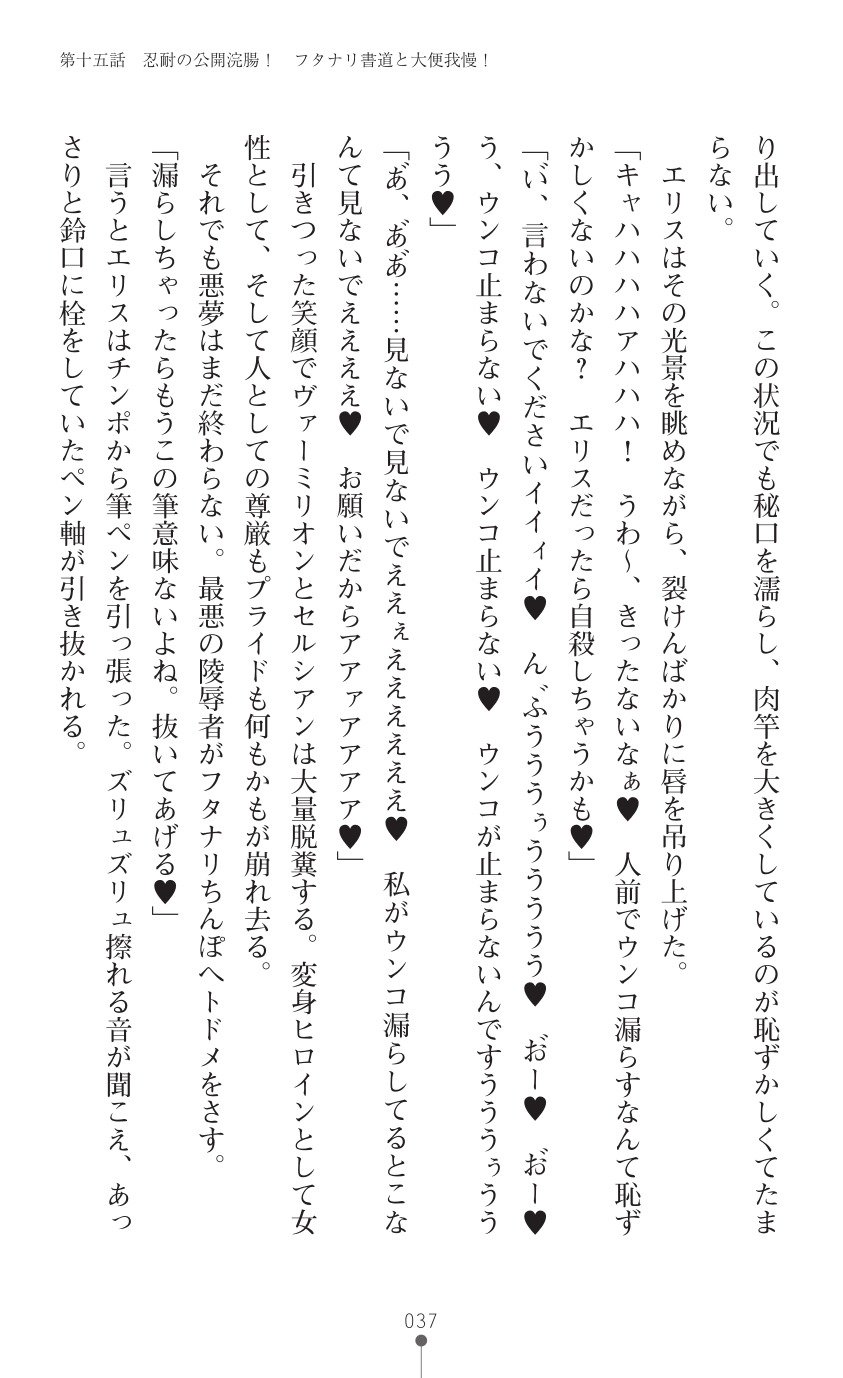 第十五話　忍耐の公開浣腸！　フタナリ書道と大便我慢！
り出していく。この状況でも秘口を濡らし、肉竿を大きくしているのが恥ずかしくてたま
らない。
　エリスはその光景を眺めながら、裂けんばかりに唇を吊り上げた。
「キャハハハハアハハハ！　うわ～、きったないなぁ♥　人前でウンコ漏らすなんて恥ず
かしくないのかな？　エリスだったら自殺しちゃうかも♥」
「い゛、言わないでくださいイイィイ♥　ん゛ぶううううぅううううう♥　お゛ー♥　お゛ー♥
う、ウンコ止まらない♥　ウンコ止まらない♥　ウンコが止まらないんですうううぅうう
うう♥」
「あ゛、あ゛あ゛……見ないで見ないでええぇええええええ♥　私がウンコ漏らしてるとこな
んて見ないでええええ♥　お願いだからアアァアアアア♥」
　引きつった笑顔でヴァーミリオンとセルシアンは大量脱糞する。変身ヒロインとして女
性として、そして人としての尊厳もプライドも何もかもが崩れ去る。
　それでも悪夢はまだ終わらない。最悪の陵辱者がフタナリちんぽへトドメをさす。
「漏らしちゃったらもうこの筆意味ないよね。抜いてあげる♥」
　言うとエリスはチンポから筆ペンを引っ張った。ズリュズリュ擦れる音が聞こえ、あっ
さりと鈴口に栓をしていたペン軸が引き抜かれる。
037